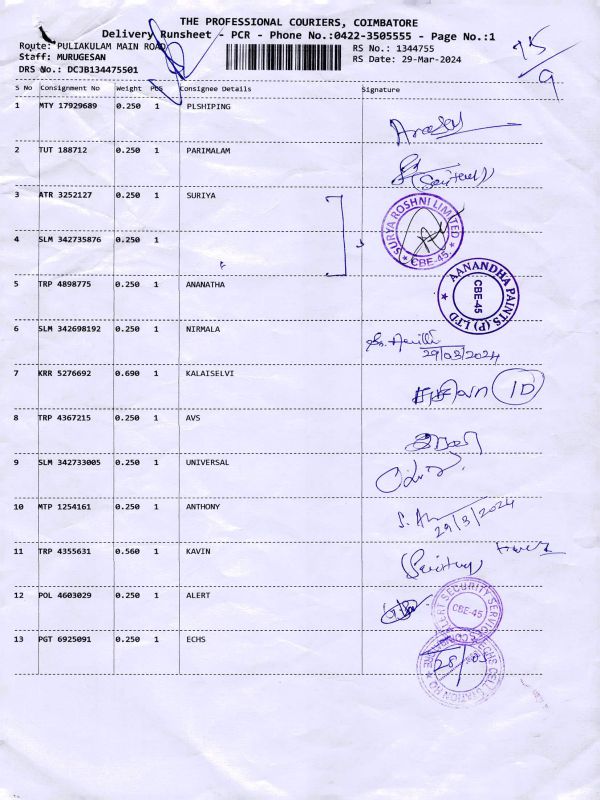 THE PROFESSIONAL COURIERS, COIMBATORE
Delivery Runsheet - PCR - Phone No.:0422-3505555 - Page No.:1
Route: PULIAKULAM MAIN ROAD
RS No.: 1344755
Staff: MURUGESAN
RS Date: 29-Mar-2024
DRS No.: DCJB134475501
75/9
S No Consignment No Weight PCS Consignee Details Signature
1 MTY 17929689 0.250 1 PLSHIPING
2 TUT 188712 0.250 1 PARIMALAM
3 ATR 3252127 0.250 1 SURIYA
SURYA ROSHNI LIMITED
CBE-45.
4 SLM 342735876 0.250 1
5 TRP 4898775 0.250 1 ANANATHA
AANANDHA PAINTS (P) LTD
CBE-45
6 SLM 342698192 0.250 1 NIRMALA
29/03/2024
7 KRR 5276692 0.690 1 KALAISELVI
ID
8 TRP 4367215 0.250 1 AVS
9 SLM 342733005 0.250 1 UNIVERSAL
10 MTP 1254161 0.250 1 ANTHONY
29/3/2024
11 TRP 4355631 0.560 1 KAVIN
12 POL 4603029 0.250 1 ALERT
ALERT SECURITY SERVICE
CBE-45
13 PGT 6925091 0.250 1 ECHS
ECHS CELL STATION HQ